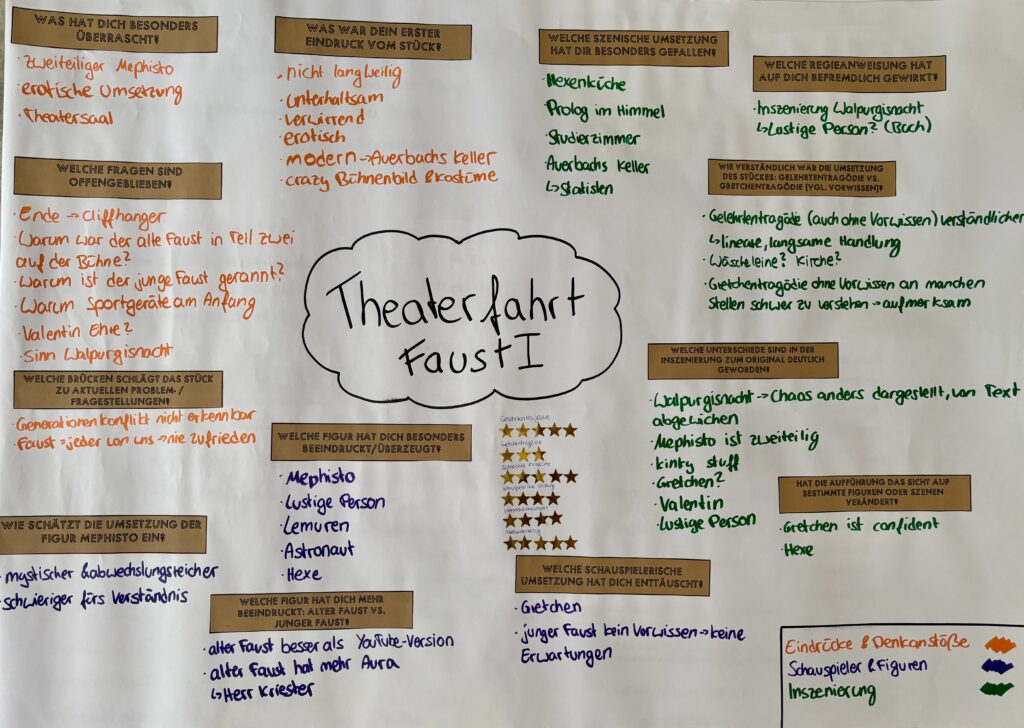 WAS HAT DICH BESONDERS
ÜBERRASCHT?
· zweiteiliger Mephisto
· erotische Umsetzung
· Theatersaal
WAS WAR DEIN ERSTER
EINDRUCK VOM STÜCK?
· nicht langweilig
· unterhaltsam
· verwirrend
· erotisch
· modern → Auerbachs Keller
· crazy Bühnenbild & Kostüme
WELCHE SZENISCHE UMSETZUNG
HAT DIR BESONDERS GEFALLEN?
· Hexenküche
· Prolog im Himmel
· Studierzimmer
· Auerbachs Keller
↳ Statisten
WELCHE REGIEANWEISUNG HAT
AUF DICH BEFREMDLICH GEWIRKT?
· Inszenierung Walpurgisnacht
↳ Lustige Person? (Buch)
WELCHE FRAGEN SIND
OFFENGEBLIEBEN?
· Ende → Cliffhanger
· Warum war der alte Faust in Teil zwei
auf der Bühne?
· Warum ist der junge Faust gerannt?
· Warum Sportgeräte am Anfang
· Valentin Ehre?
· Sinn Walpurgisnacht
WIE VERSTÄNDLICH WAR DIE UMSETZUNG
DES STÜCKES: GELEHRTENTRAGÖDIE VS.
GRETCHENTRAGÖDIE (VGL. VORWISSEN)?
· Gelehrtentragödie (auch ohne Vorwissen) verständlicher
↳ lineare, langsame Handlung
· Wäscheleine? Kirche?
· Gretchentragödie ohne Vorwissen an manchen
Stellen schwer zu verstehen → aufmerksam
Theaterfahrt
Faust I
WELCHE BRÜCKEN SCHLÄGT DAS STÜCK
ZU AKTUELLEN PROBLEM-/
FRAGESTELLUNGEN?
· Generationenkonflikt nicht erkennbar
· Faust = jeder von uns → nie zufrieden
WELCHE UNTERSCHIEDE SIND IN DER
INSZENIERUNG ZUM ORIGINAL DEUTLICH
GEWORDEN?
· Walpurgisnacht → Chaos anders dargestellt, von Text
abgewichen
· Mephisto ist zweiteilig
· kinky stuff
· Gretchen?
· Valentin
· Lustige Person
WELCHE FIGUR HAT DICH BESONDERS
BEEINDRUCKT/ÜBERZEUGT?
· Mephisto
· Lustige Person
· Lemuren
· Astronaut
· Hexe
Gelehrtentragödie
Gretchentragödie
HAT DIE AUFFÜHRUNG DAS SICHT AUF
BESTIMMTE FIGUREN ODER SZENEN
VERÄNDERT?
· Gretchen ist confident
· Hexe
WIE SCHÄTZT DIE UMSETZUNG DER
FIGUR MEPHISTO EIN?
· mystischer & abwechslungsreicher
· schwieriger fürs Verständnis
WELCHE FIGUR HAT DICH MEHR
BEEINDRUCKT: ALTER FAUST VS.
JUNGER FAUST?
· alter Faust besser als YouTube-Version
· alter Faust hat mehr Aura
↳ Herr Kriester
WELCHE SCHAUSPIELERISCHE
UMSETZUNG HAT DICH ENTTÄUSCHT?
· Gretchen
· junger Faust kein Vorwissen → keine
Erwartungen
Eindrücke & Denkanstöße
Schauspieler & Figuren
Inszenierung